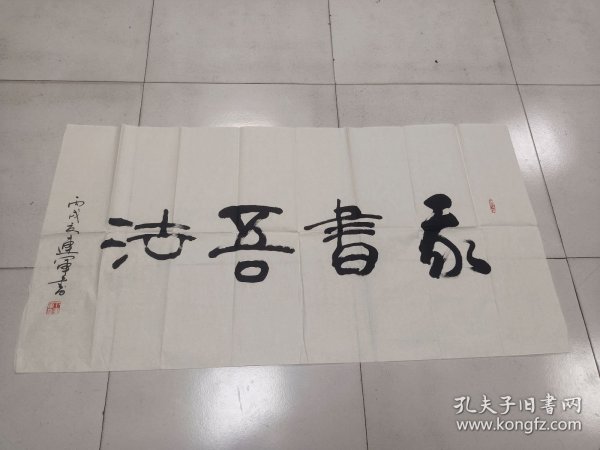 我書吾法
丙戌玄連軍書
孔夫子旧書网
www.kongfz.com